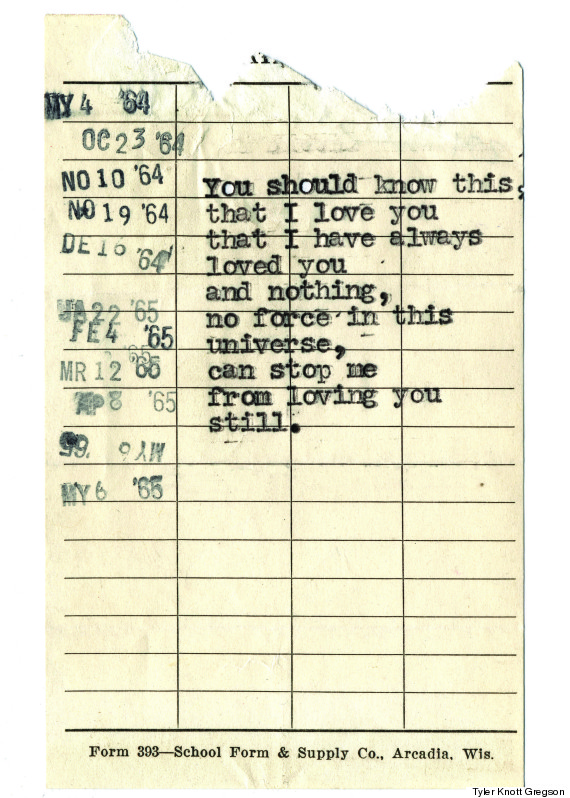 MY 4 '64
OC 23 '64
NO 10 '64
NO 19 '64
DE 16 '64
JA 22 '65
FE 4 '65
'65
MR 12 '65
AP 8 '65
MY 6 '65
MY 6 '65
You should know this,
that I love you
that I have always
loved you
and nothing,
no force in this
universe,
can stop me
from loving you
still.
Form 393—School Form & Supply Co., Arcadia, Wis.
Tyler Knott Gregson